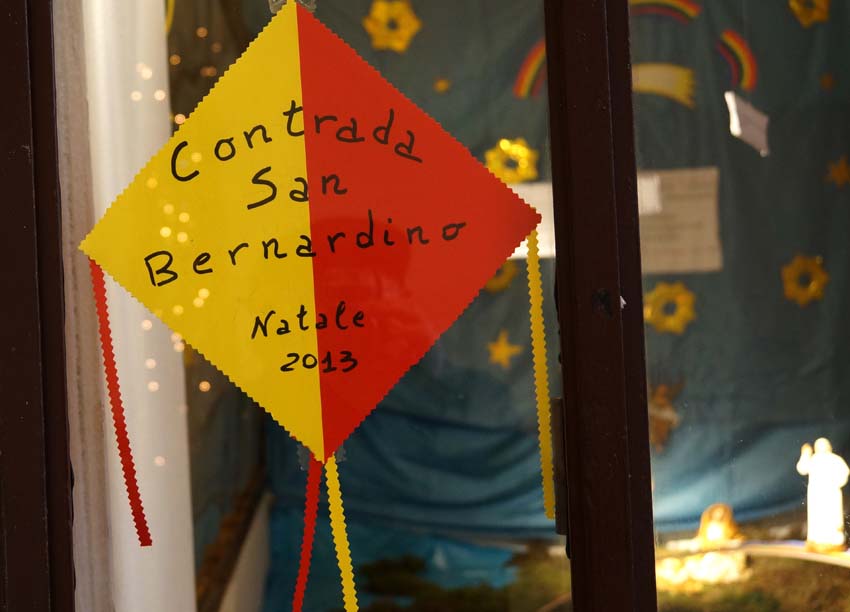 Contrada
San
Bernardino
Natale
2013